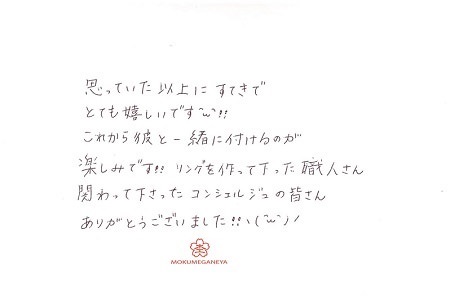 思っていた以上にすてきで
とても嬉しいです^ω^!!
これから彼と一緒に付けるのが
楽しみです!! リングを作って下った職人さん
関わって下さったコンシェルジュの皆さん
ありがとうございました!!ヽ(^ω^)ノ
MOKUMEGANEYA